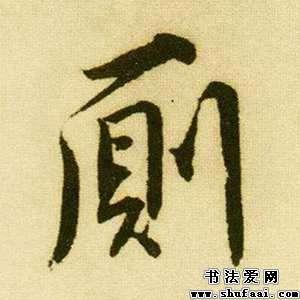 厠
书法爱网
www.shufaai.com